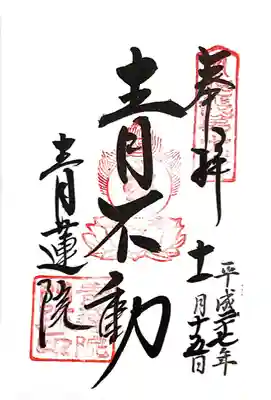 奉拝
平成二十七年
十一月十五日
青不動
青蓮院